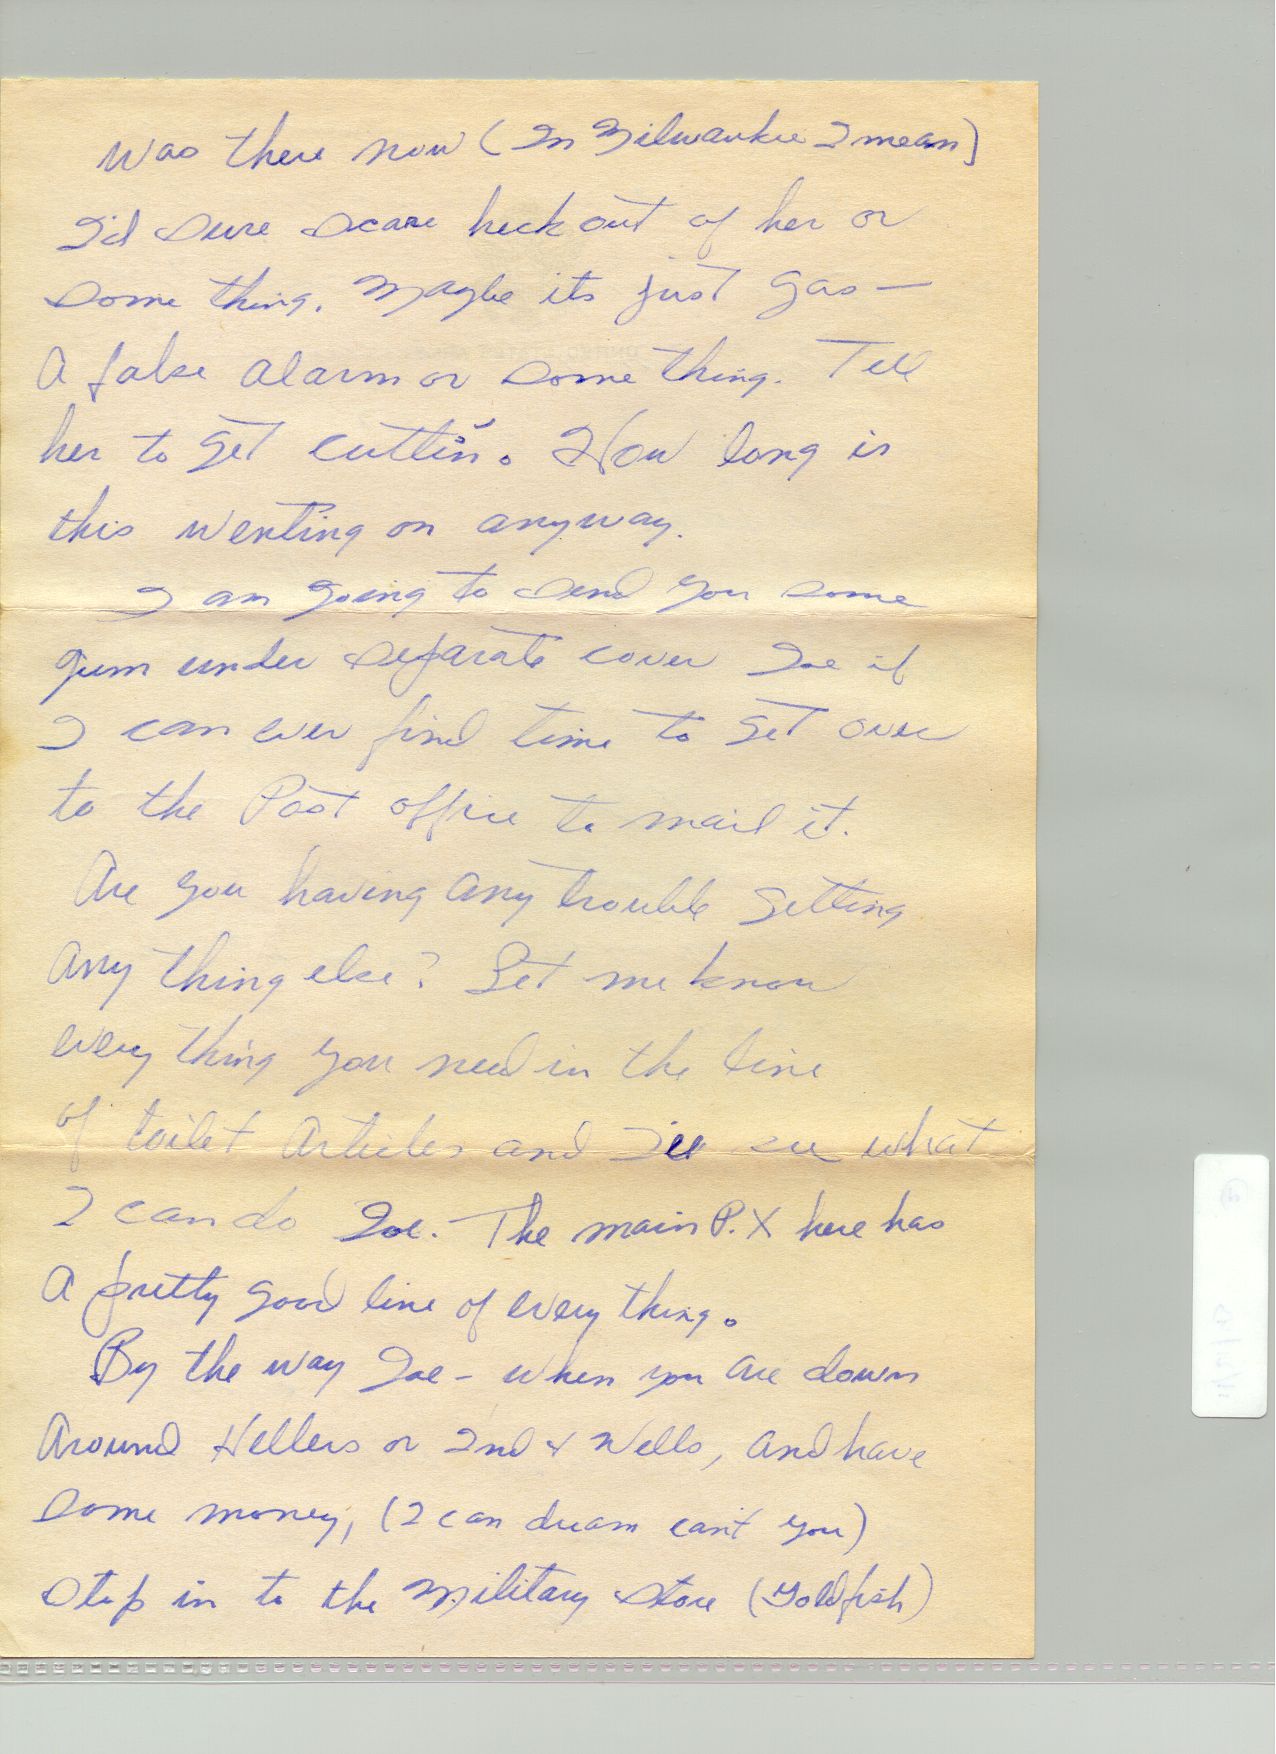 was there now (In Milwaukie I mean)
I'd sure scare heck out of her or
some thing. Maybe its just gas —
A false alarm or some thing. Tell
her to get cuttin'. How long is
this wenting on anyway.
I am going to send you some
gum under separate cover Joe if
I can ever find time to get over
to the Post office to mail it.
Are you having any trouble getting
any thing else? Let me know
every thing you need in the line
of toilet articles and I'll see what
I can do Joe. The main P.X here has
A pretty good line of every thing.
By the way Joe - when you are down
Around Hellers or 2nd & Wells, and have
some money, (I can dream can't you)
stop in to the Military store (Goldfish)